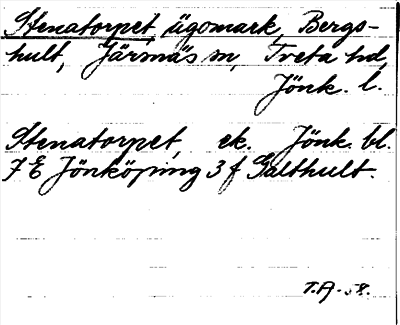 Stenatorpet, ägomark, Bergs-
hult, Järsnäs sn, Tveta hd,
Jönk. l.
Stenatorpet, ek. Jönk. bl.
7 E Jönköping 3 f Galthult.
T.A. 58.